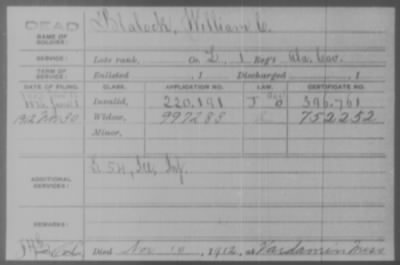 DEAD
NAME OF SOLDIER: Blalock, William C.
SERVICE: Late rank, Co. L, 1 Reg't Ala. Cav.
TERM OF SERVICE: Enlisted , 1 Discharged , 1
DATE OF FILING. CLASS. APPLICATION NO. LAW. CERTIFICATE NO.
Invalid, 220.191 J 396.761
1912 Nov 30 Widow, 997283 752252
Minor,
ADDITIONAL SERVICES: E 54, Ill, Inf.
REMARKS:
Died Nov 10, 1912, at Vardaman Miss